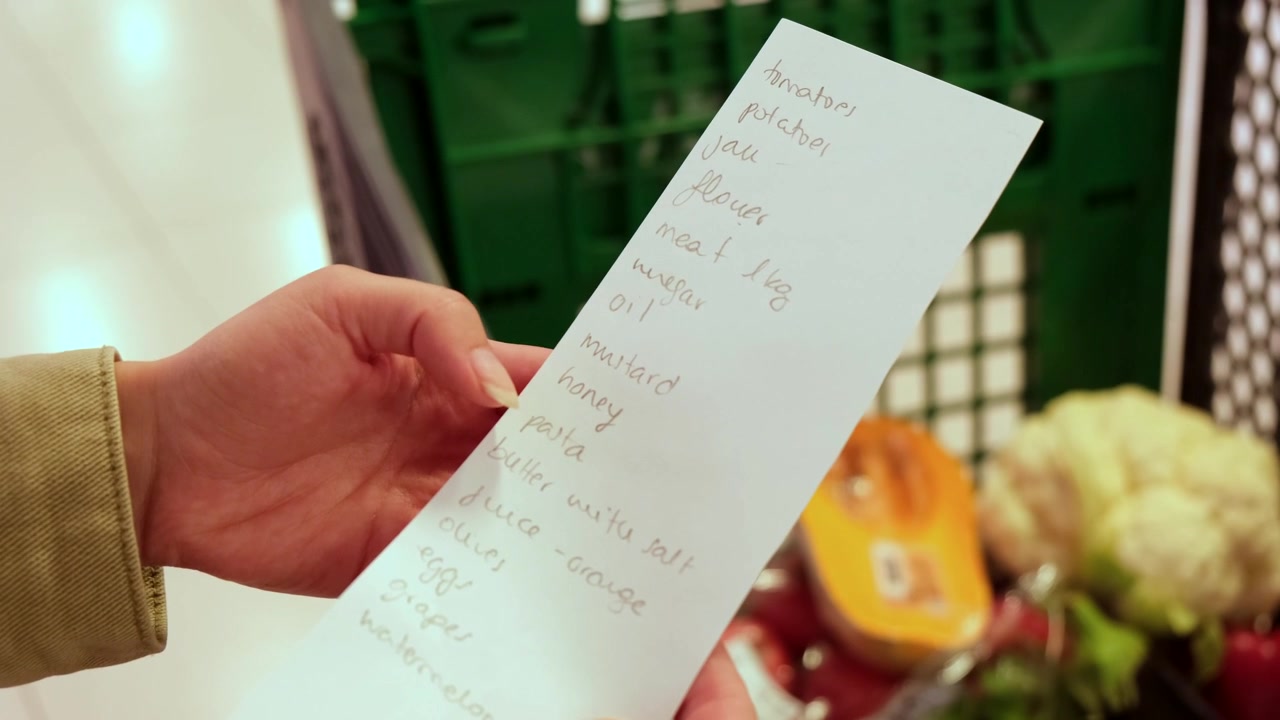 tomatoes
potatoes
flouer
meat 1kg
vinegar
oil
mustard
honey
pasta
butter with salt
juice - orange
olives
eggs
grapes
watermelon